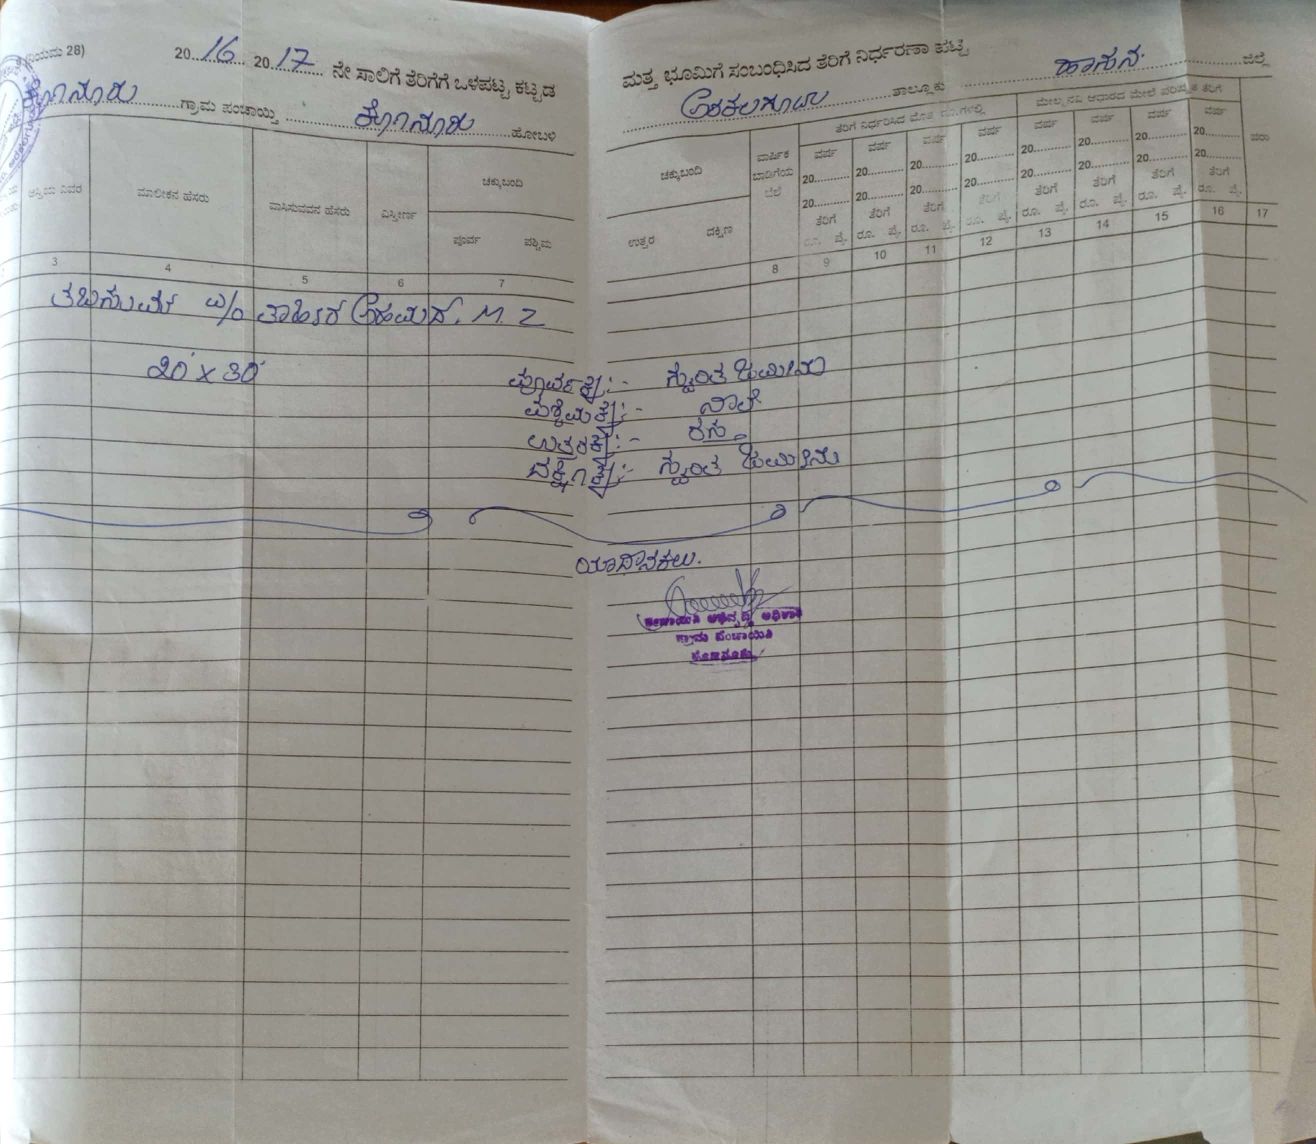 (ನಿಯಮ 28)
2016 2017 ನೇ ಸಾಲಿಗೆ ತೆರಿಗೆಗೆ ಒಳಪಟ್ಟ ಕಟ್ಟಡ ಮತ್ತು ಭೂಮಿಗೆ ಸಂಬಂಧಿಸಿದ ತೆರಿಗೆ ನಿರ್ಧರಣಾ ಪಟ್ಟಿ
ಕೊಣನೂರು ಗ್ರಾಮ ಪಂಚಾಯ್ತಿ ಕೊಣನೂರು ಹೋಬಳಿ ಅರಕಲಗೂಡು ತಾಲ್ಲೂಕು ಹಾಸನ ಜಿಲ್ಲೆ
ಆಸ್ತಿಯ ವಿವರ ಮಾಲೀಕನ ಹೆಸರು ವಾಸಿಸುವವನ ಹೆಸರು ವಿಸ್ತೀರ್ಣ ಚಕ್ಕುಬಂದಿ ಚಕ್ಕುಬಂದಿ ವಾರ್ಷಿಕ ಬಾಡಿಗೆಯ ಬೆಲೆ
ವರ್ಷ ವರ್ಷ ವರ್ಷ ವರ್ಷ ವರ್ಷ ವರ್ಷ ವರ್ಷ ವರ್ಷ
20......... 20......... 20......... 20......... 20......... 20......... 20......... 20.........
20......... 20......... 20......... 20......... 20......... 20......... 20......... 20.........
ತೆರಿಗೆ ತೆರಿಗೆ ತೆರಿಗೆ ತೆರಿಗೆ ತೆರಿಗೆ ತೆರಿಗೆ ತೆರಿಗೆ ತೆರಿಗೆ
ಪೂರ್ವ ಪಶ್ಚಿಮ ಉತ್ತರ ದಕ್ಷಿಣ ರೂ. ಪೈ. ರೂ. ಪೈ. ರೂ. ಪೈ. ರೂ. ಪೈ. ರೂ. ಪೈ. ರೂ. ಪೈ. ರೂ. ಪೈ. ರೂ. ಪೈ.
3 4 5 6 7 8 9 10 11 12 13 14 15 16 17
ತಬಸುಮ್ W/O ತಾಹಿರ ಅಹಮದ್. M. Z
20' x 30'
ಪೂರ್ವಕ್ಕೆ:- ಸ್ವಂತ ಜಮೀನು
ಪಶ್ಚಿಮಕ್ಕೆ:- ನಾಲೆ
ಉತ್ತರಕ್ಕೆ:- ರಸ್ತೆ
ದಕ್ಷಿಣಕ್ಕೆ:- ಸ್ವಂತ ಜಮೀನು
ಪಂಚಾಯಿತಿ ಅಭಿವೃದ್ಧಿ ಅಧಿಕಾರಿ
ಗ್ರಾಮ ಪಂಚಾಯಿತಿ
ಕೊಣನೂರು